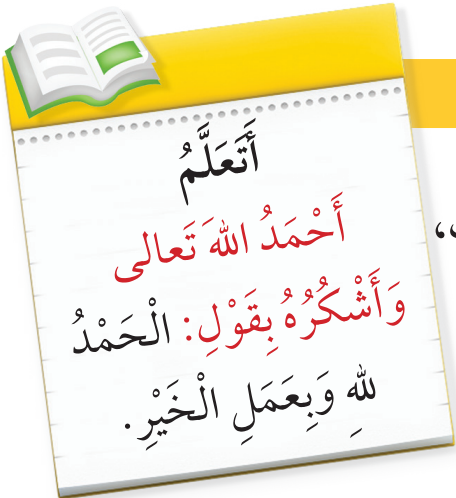 أَتَعَلَّمُ
أَحْمَدُ اللهَ تَعالى
وَأَشْكُرُهُ بِقَوْلِ: الْحَمْدُ
للهِ وَبِعَمَلِ الْخَيْرِ.
“